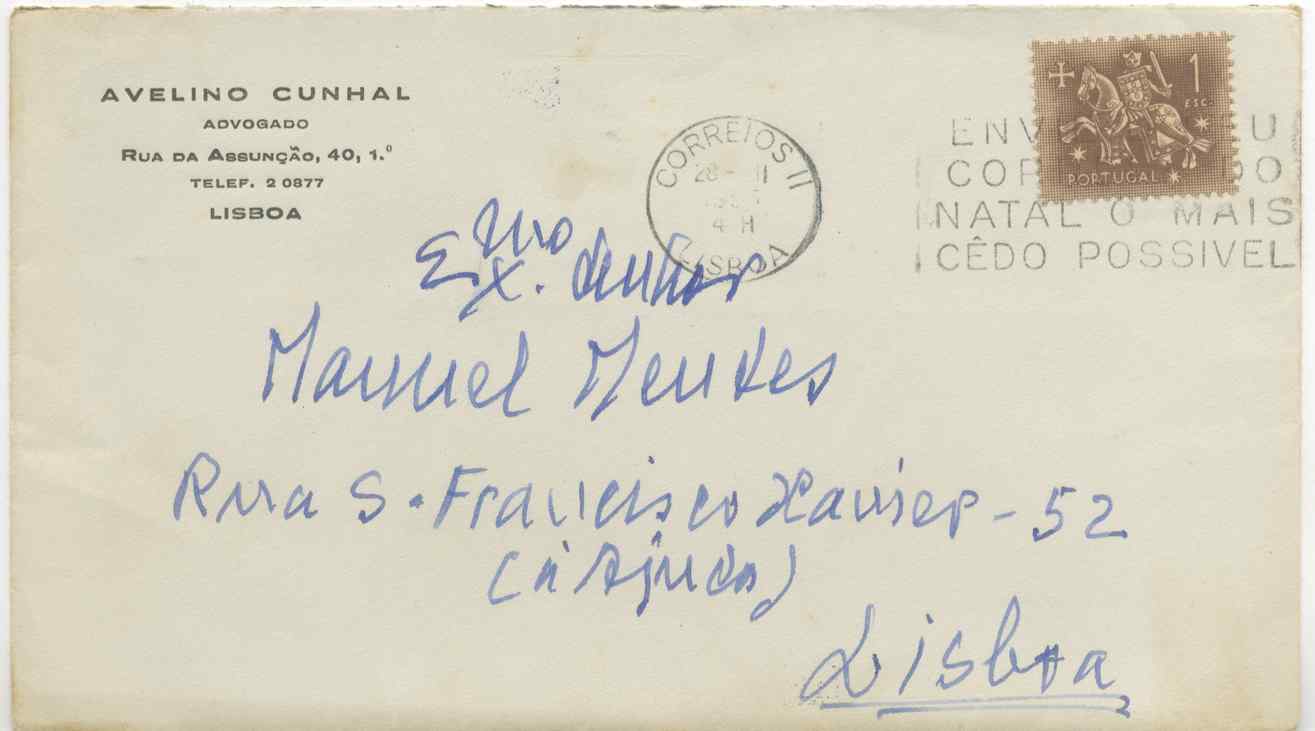 AVELINO CUNHAL
ADVOGADO
RUA DA ASSUNÇÃO, 40, 1.º
TELEF. 2 0877
LISBOA
1
ESC.
PORTUGAL
CORREIOS II
28 - II
4 H
LISBOA
ENV U
COR DO
NATAL O MAIS
CÊDO POSSIVEL
Exmo. Senhor
Manuel Mendes
Rua S. Francisco Xavier - 52
(à Ajuda)
Lisboa